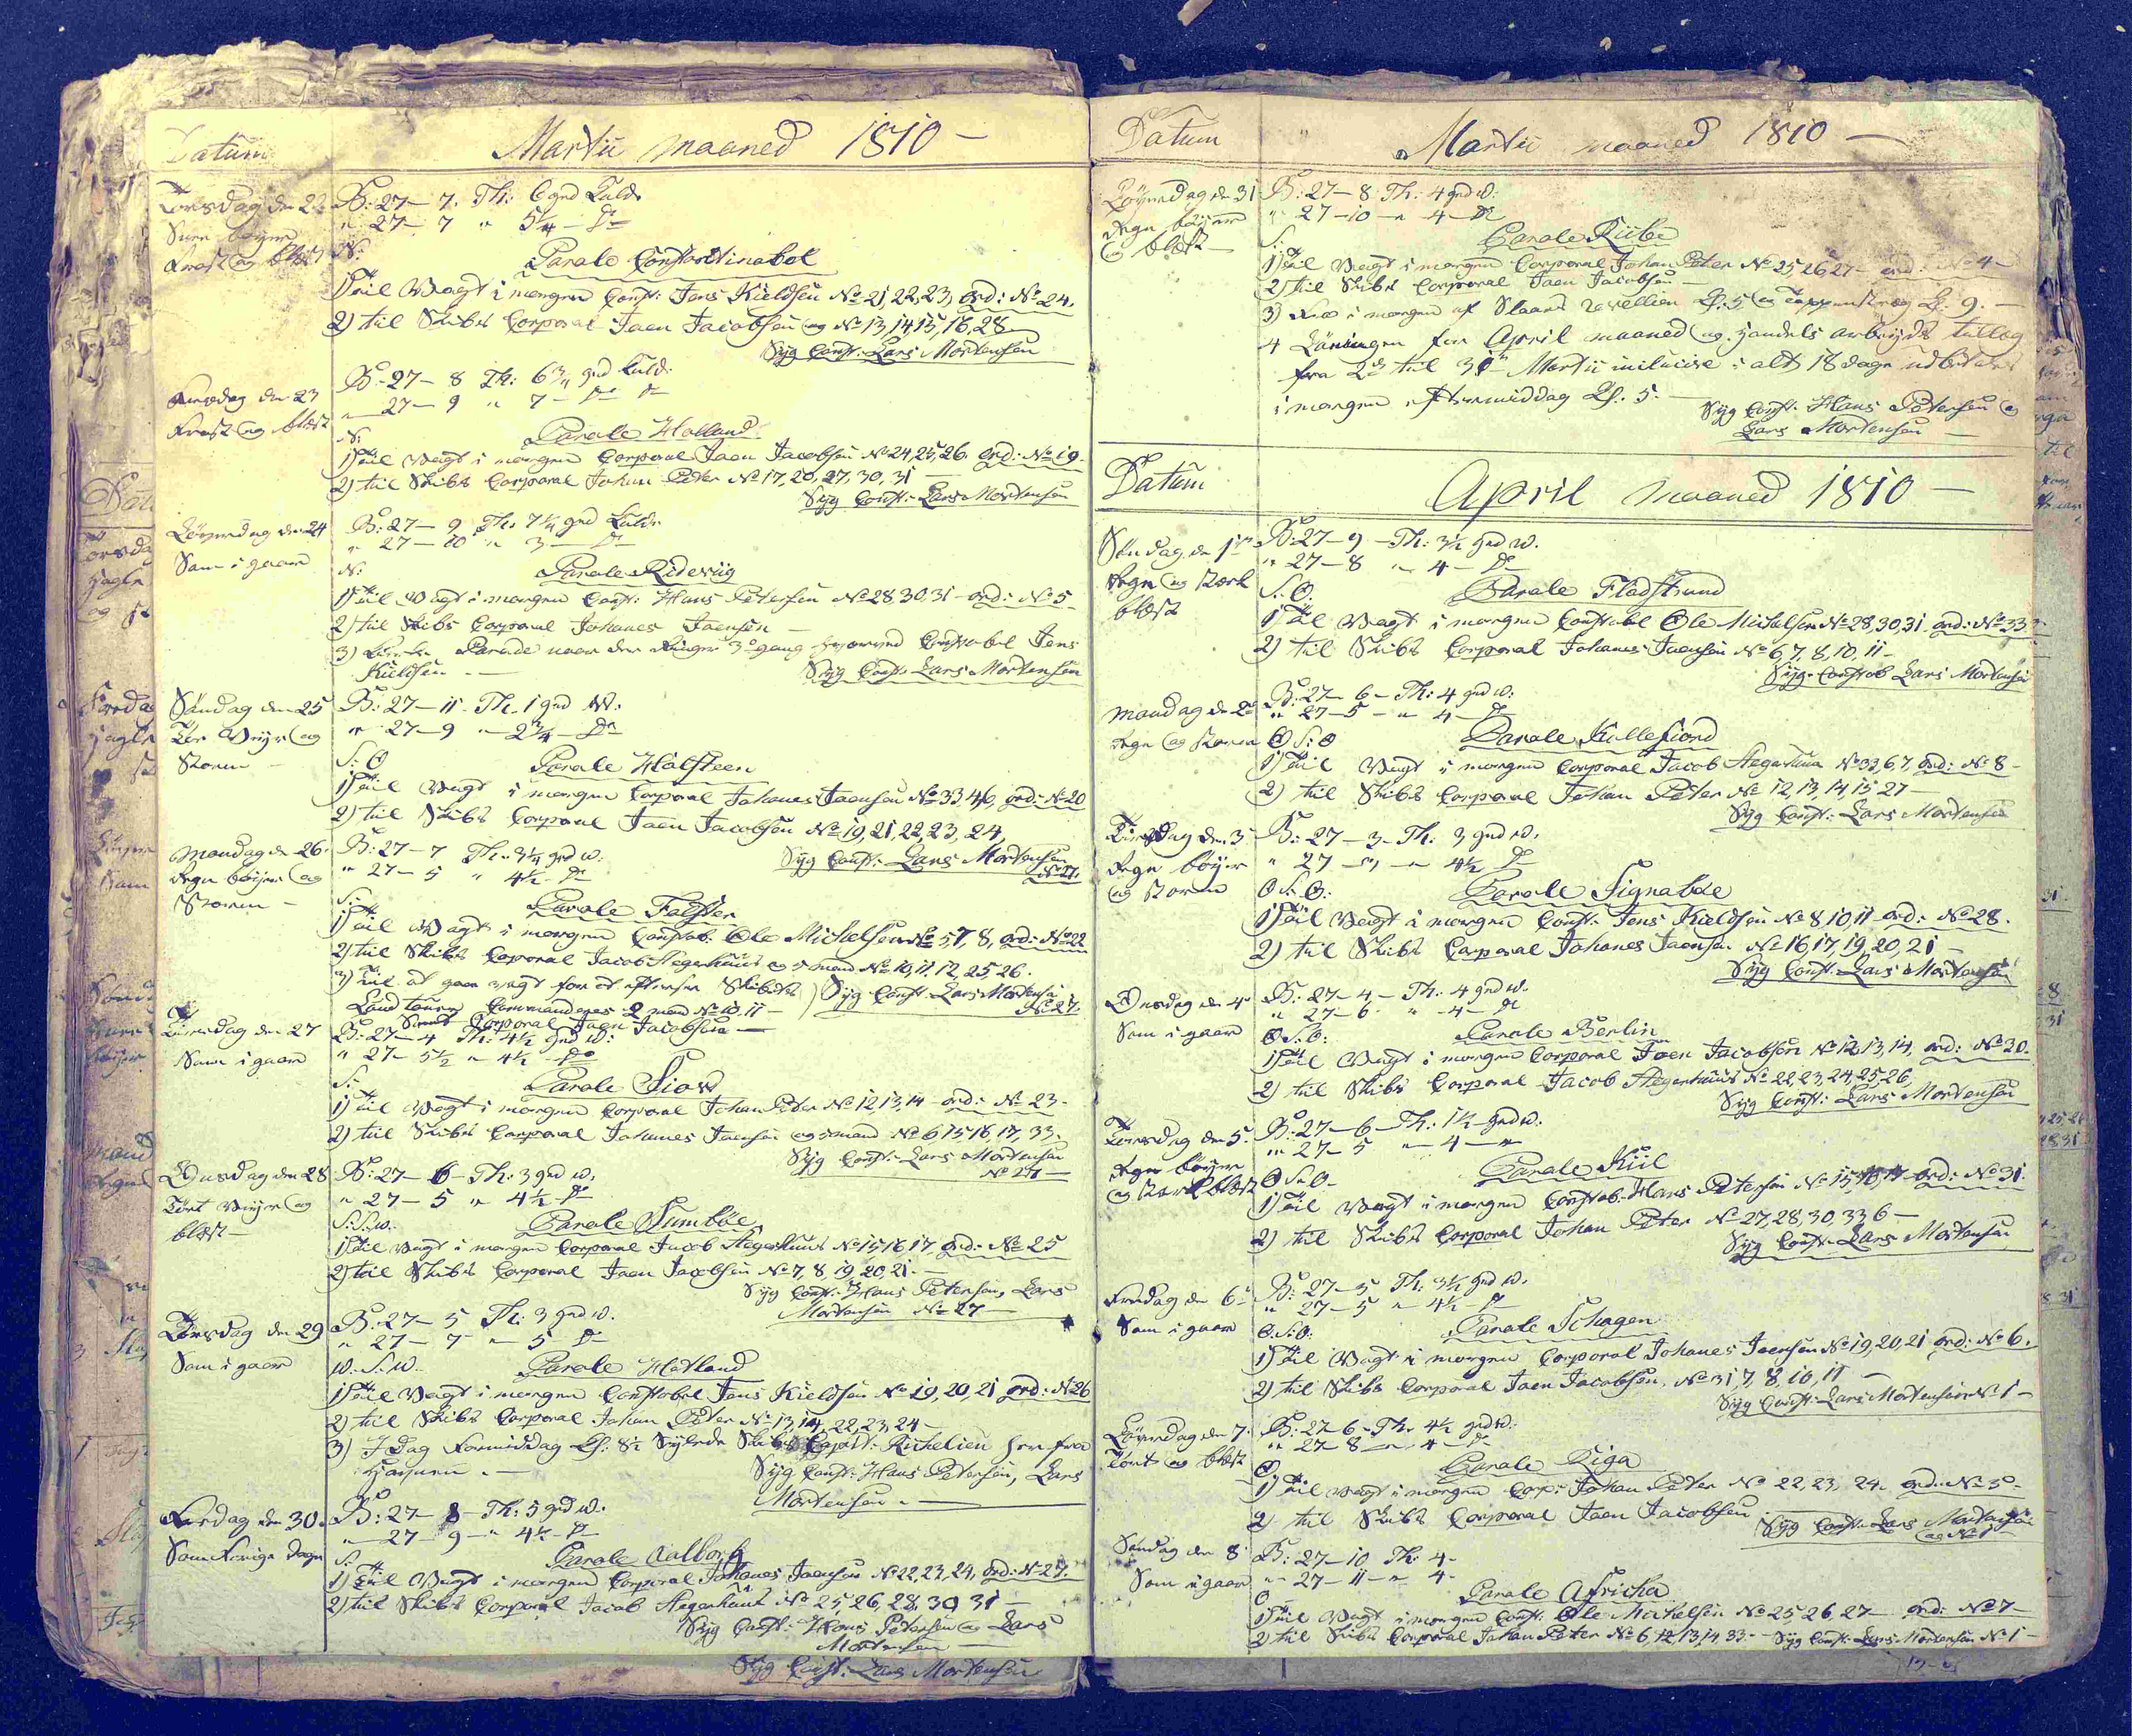 Datum
Martii maaned 1810 —
Torsdag den 22
Snee böyer
Frost og blæst
B: 27 — 7. Th: 6 grd Kulde
" 27 — 7 " 5¼ — Do
N:
Parole Constantinobel
1) Til Vagt i morgen Const: Jens Kieldsen No 21, 22, 23, ord: No 24.
2) til Skibs Corporal Joen Jacobsen og No 13, 14, 15, 16, 28
Syg Const: Lars Mortensen
Fredag den 23
Frost og blæst
B: 27 — 8 Th: 6¾ grd Kuld:
" 27 — 9 " 7 — Do Do
N:
Parole Holland
1) Til Vagt i morgen Corporal Joen Jacobsen No 24, 25, 26. ord: No 19.
2) til Skibs Corporal Johan Peter No 17, 20, 27, 30, 31
Syg Const: Lars Mortensen
Löverdag den 24
Som i gaar
B: 27 — 9 Th: 7¼ grd Kulde
" 27 — 10 " 3 — Do
N:
Parole
1) Til Vagt i morgen Const: Hans Petersen No 28, 30, 31 — ord: No 5
2) til Skibs Corporal Johanes Joensen —
3) Kirke Parade naar der Ringes 3die gang Constabel Jens
Kieldsen —
Syg Const: Lars Mortensen
Söndag den 25
Tör Veyr og
Storm —
B: 27 — 11 — Th: 1 grd W:
" 27 — 9 " 2¾ — Do
S: O
Parole Holsteen
1) Til Vagt i morgen Corporal Johanes Joensen No 33, 4, 6, ord: No 20
2) til Skibs Corporal Joen Jacobsen No 19, 21, 22, 23, 24,
Syg Const: Lars Mortensen
No 27.
Mandag de 26.
Regn böyer og
Storm —
B: 27 — 7 Th: 3¼ grd w:
" 27 — 5 " 4½ — Do
S:
Parole Falster
1) Til Vagt i morgen Constab: Ole Michelsen No 5, 7, 8, ord: No 22
2) til Skibs Corporal Jacob Stegerhuus og 5 mand No 10, 11, 12, 25, 26.
3) Til at gaae vagt for at eftersee Skibets
Land Commanderes 2 mand No 10, 11 —
Syg Const: Lars Mortensen
No 27.
Corporal Joen Jacobsen —
Tiirsdag den 27
Som i gaar
B: 27 — 4 Th: 4½ grd W:
" 27 — 5½ " 4½ — Do
S:
Parole Siov
1) Til Vagt i morgen Corporal Johan Peter No 12, 13, 14 — ord: No 23 —
2) til Skibs Corporal Johanes Joensen og 5 mand No 6, 15, 16, 17, 33.
Syg Const: Lars Mortensen
No 27 —
Onsdag den 28
Tört Veyr og
blæst —
B: 27 — 6 — Th: 3 grd w:
" 27 — 5 " 4½ — Do
S: S: w:
Parole Sumböe
1) Til Vagt i morgen Corporal Jacob Stegerhuus No 15, 16, 17, ord: No 25
2) til Skibs Corporal Joen Jacobsen No 7, 8, 19, 20, 21. —
Syg Const: Hans Petersen, Lars
Mortensen No 27 —
Torsdag den 29
Som i gaar
B: 27 — 5 Th: 3 grd w:
" 27 — 7 — " 5 Do
W: S: W:
Parole Hatland
1) Til Vagt i morgen Constabel Jens Kieldsen No 19, 20, 21 ord: No 26
2) til Skibs Corporal Johan Peter No 13, 14, 22, 23, 24 —
3) I Dag Formiddag Kl: 8½ Seylede Skibs Capit: Richelieu her fra
Havnen. —
Syg Const: Hans Petersen, Lars
Mortensen —
Fredag den 30.
Som Forige Dage
B: 27 — 8 — Th: 5 grd w:
" 27 — 9 — " 4½ — Do
S:
Parole Aalborg
1) Til Vagt i morgen Corporal Johanes Joensen No 22, 23, 24, ord: No 27.
2) til Skibs Corporal Jacob Stegerhuus No 25, 26, 28, 30, 31 —
Syg Const: Hans Petersen og Lars
Mortensen —
Syg Const: Lars Mortensen
Datum
Martii maaned 1810 —
Löverdag de 31
Regn böyer
og blæst —
B: 27 — 8 Th: 4 grd w:
" 27 — 10 — " 4 — Do
S:
Parole Riibe
1) Til Vagt i morgen Corporal Johan Peter No 25, 26, 27 — ord: No 4 —
2) til Skibs Corporal Joen Jacobsen —
3) Fra i morgen af Slaaes Revellien Kl: 5 og Tappenstræg Kl. 9. —
4 Löningen for April maaned og Handels arbeyds tillæg
fra 2de til 31te Martii inclusive i alt 18 dage udbetales
i morgen eftermiddag Kl. 5. —
Syg Const: Hans Petersen og
Lars Mortensen —
Datum
April maaned 1810 —
Söndag de 1te
Regn og stærk
blæst
B: 27 — 9 — Th: 3½ grd w.
" 27 — 8 " 4 — Do
S: O:
Parole Fladstrand
1) Til Vagt i morgen Constabel Ole Michelsen No 28, 30, 31 ord: No 33
2) til Skibs Corporal Johanes Joensen No 6, 7, 8, 10, 11 —
Syg Constab Lars Mortensen
Mandag de 2de
Regn og storm
B: 27 — 6 — Th: 4 grd w:
" 27 — 5 — " 4 — Do
O S: O
Parole Kullefiord
1) Til Vagt i morgen Corporal Jacob Stegerhuus No 33, 6, 7, ord: No 8 —
2) til Skibs Corporal Johan Peter No 12, 13, 14, 15, 27 —
Syg Const: Lars Mortensen
Tiirsdag den 3
Regn böyer
og storm
B: 27 — 3 — Th: 3 grd w.
" 27 — 4½ Do
O S: O:
Parole Signaböe
1) Til Vagt i morgen Const: Jens Kieldsen No 8, 10, 11 — ord: No 28.
2) til Skibs Corporal Johanes Joensen No 16, 17, 19, 20, 21 —
Syg Const: Lars Mortensen
Onsdag de 4
Som i gaar
B: 27 — 4 — Th: 4 grd w:
" 27 — 6 " — 4 — Do
O S: O:
Parole Berlin
1) Til Vagt i morgen Corporal Joen Jacobsen No 12, 13, 14, ord: No 30.
2) til Skibs Corporal Jacob Stegerhuus No 22, 23, 24, 25, 26,
Syg Const: Lars Mortensen
Torsdag den 5.
Regn böyer
og stærk blæst
B: 27 — 6 — Th: 1½ grd w.
" 27 — 5 " — 4 — "
O S: O —
Parole Kiil
1) Til Vagt i morgen Constab: Hans Petersen No 15, 16, 17 ord: No 31.
2) til Skibs Corporal Johan Peter No 27, 28, 30, 33, 6 —
Syg Const: Lars Mortensen
Fredag de 6
Som i gaar
B: 27 — 5 Th: 3½ grd w.
" 27 — 5 " 4½ — Do
O: S: O:
Parole Schagen
1) Til Vagt i morgen Corporal Johanes Joensen No 19, 20, 21 ord: No 6.
2) til Skibs Corporal Joen Jacobsen, No 31, 7, 8, 10, 11 —
Syg Const: Lars Mortensen No 1 —
Löverdag de 7.
Tört og blæst
B: 27 — 6 — Th. 4½ grd w:
" 27 — 8 — " 4 — Do
O
Parole Riga
1) Til Vagt i morgen Corp: Johan Peter No 22, 23, 24. ord: No 5 —
2) til Skibs Corporal Joen Jacobsen
Syg Const: Lars Mortensen
og No 1
Söndag de 8
Som i gaar
B: 27 — 10 Th: 4 —
" 27 — 11 — " 4 —
O —
Parole Africha
1) Til Vagt i morgen Const: Ole Michelsen No 25, 26, 27 — ord: No 7 —
2) til Skibs Corporal Johan Peter No 6, 12, 13, 14, 33 — Syg Const: Lars Mortensen No 1 —